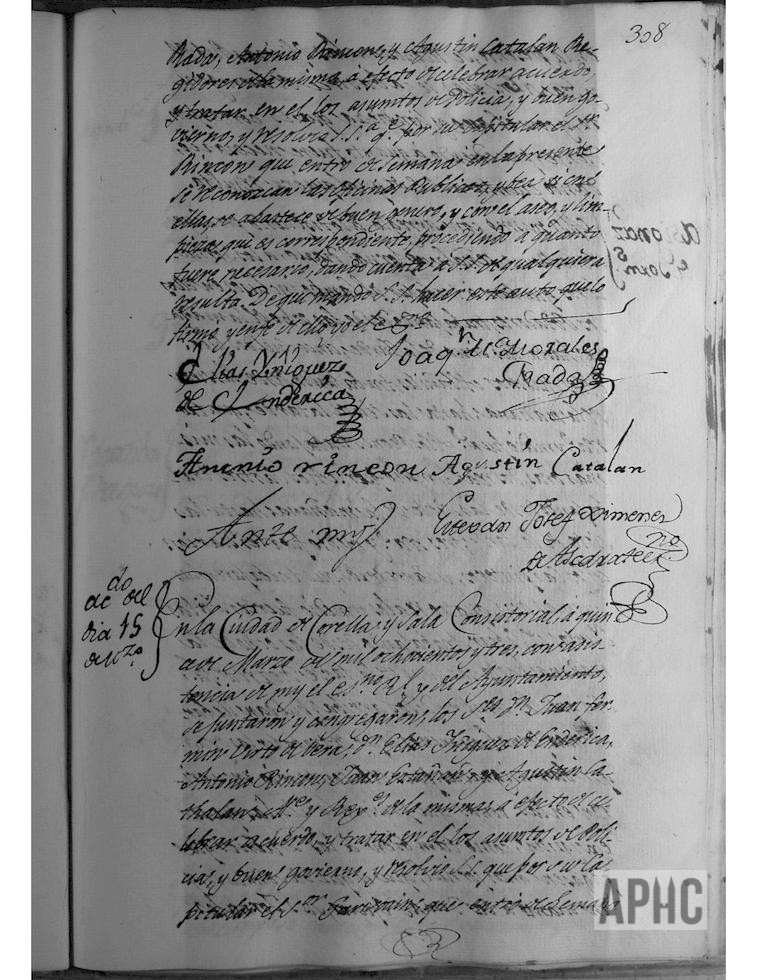 308
Rada, Antonio Rincon, y Agustin Catalan Re-
gidores de la misma, á efecto de celebrar acuerdo,
y tratar en el, los asuntos de Policia, y buen go-
vierno, y resolvió S.S.ª q.e por su Capitular el S.r
Rincon que entró de Semana en la presente
se reconozcan las oficinas Publicas, y vea si en
ellas se abastece de buen genero, y con el aseo, y lim-
pieza que es correspondiente, procediendo á quanto
fuere necesario, dando cuenta a S.S. de qualquiera
resulta. De que mandó S.S. hacer este auto que lo
firmó, y en fe de ello yo el Ess.no
Elias Yñiguez
de Enderica
Joaq.n M.a Morales
Rada
Antonio rincon Agustin Catalan
Ante my
Estevan Josef Ximenez
de Ascarate es.no
ac.do del
dia 15
de Mzo.
En la Ciudad de Corella y Sala Consistorial, á quin
ce de Marzo de mil ochocientos y tres, con asis
tencia de my el es.no R.l y del Ayuntamiento,
se juntaron y congregaron, los S.res d.n Juan fer
min Virto de Vera, d.n Elias Yñiguez de Enderica,
Antonio Rincon, Juan Catañan, y Agustin Ca-
thalan, Al.e y Rex.s de la misma, á efecto de ce
lebrar acuerdo, y tratar en el los asuntos de Poli
cia, y buen govierno, y resolvió S.S. que por su Ca
pitular el S.or que entró de Semana
APHC